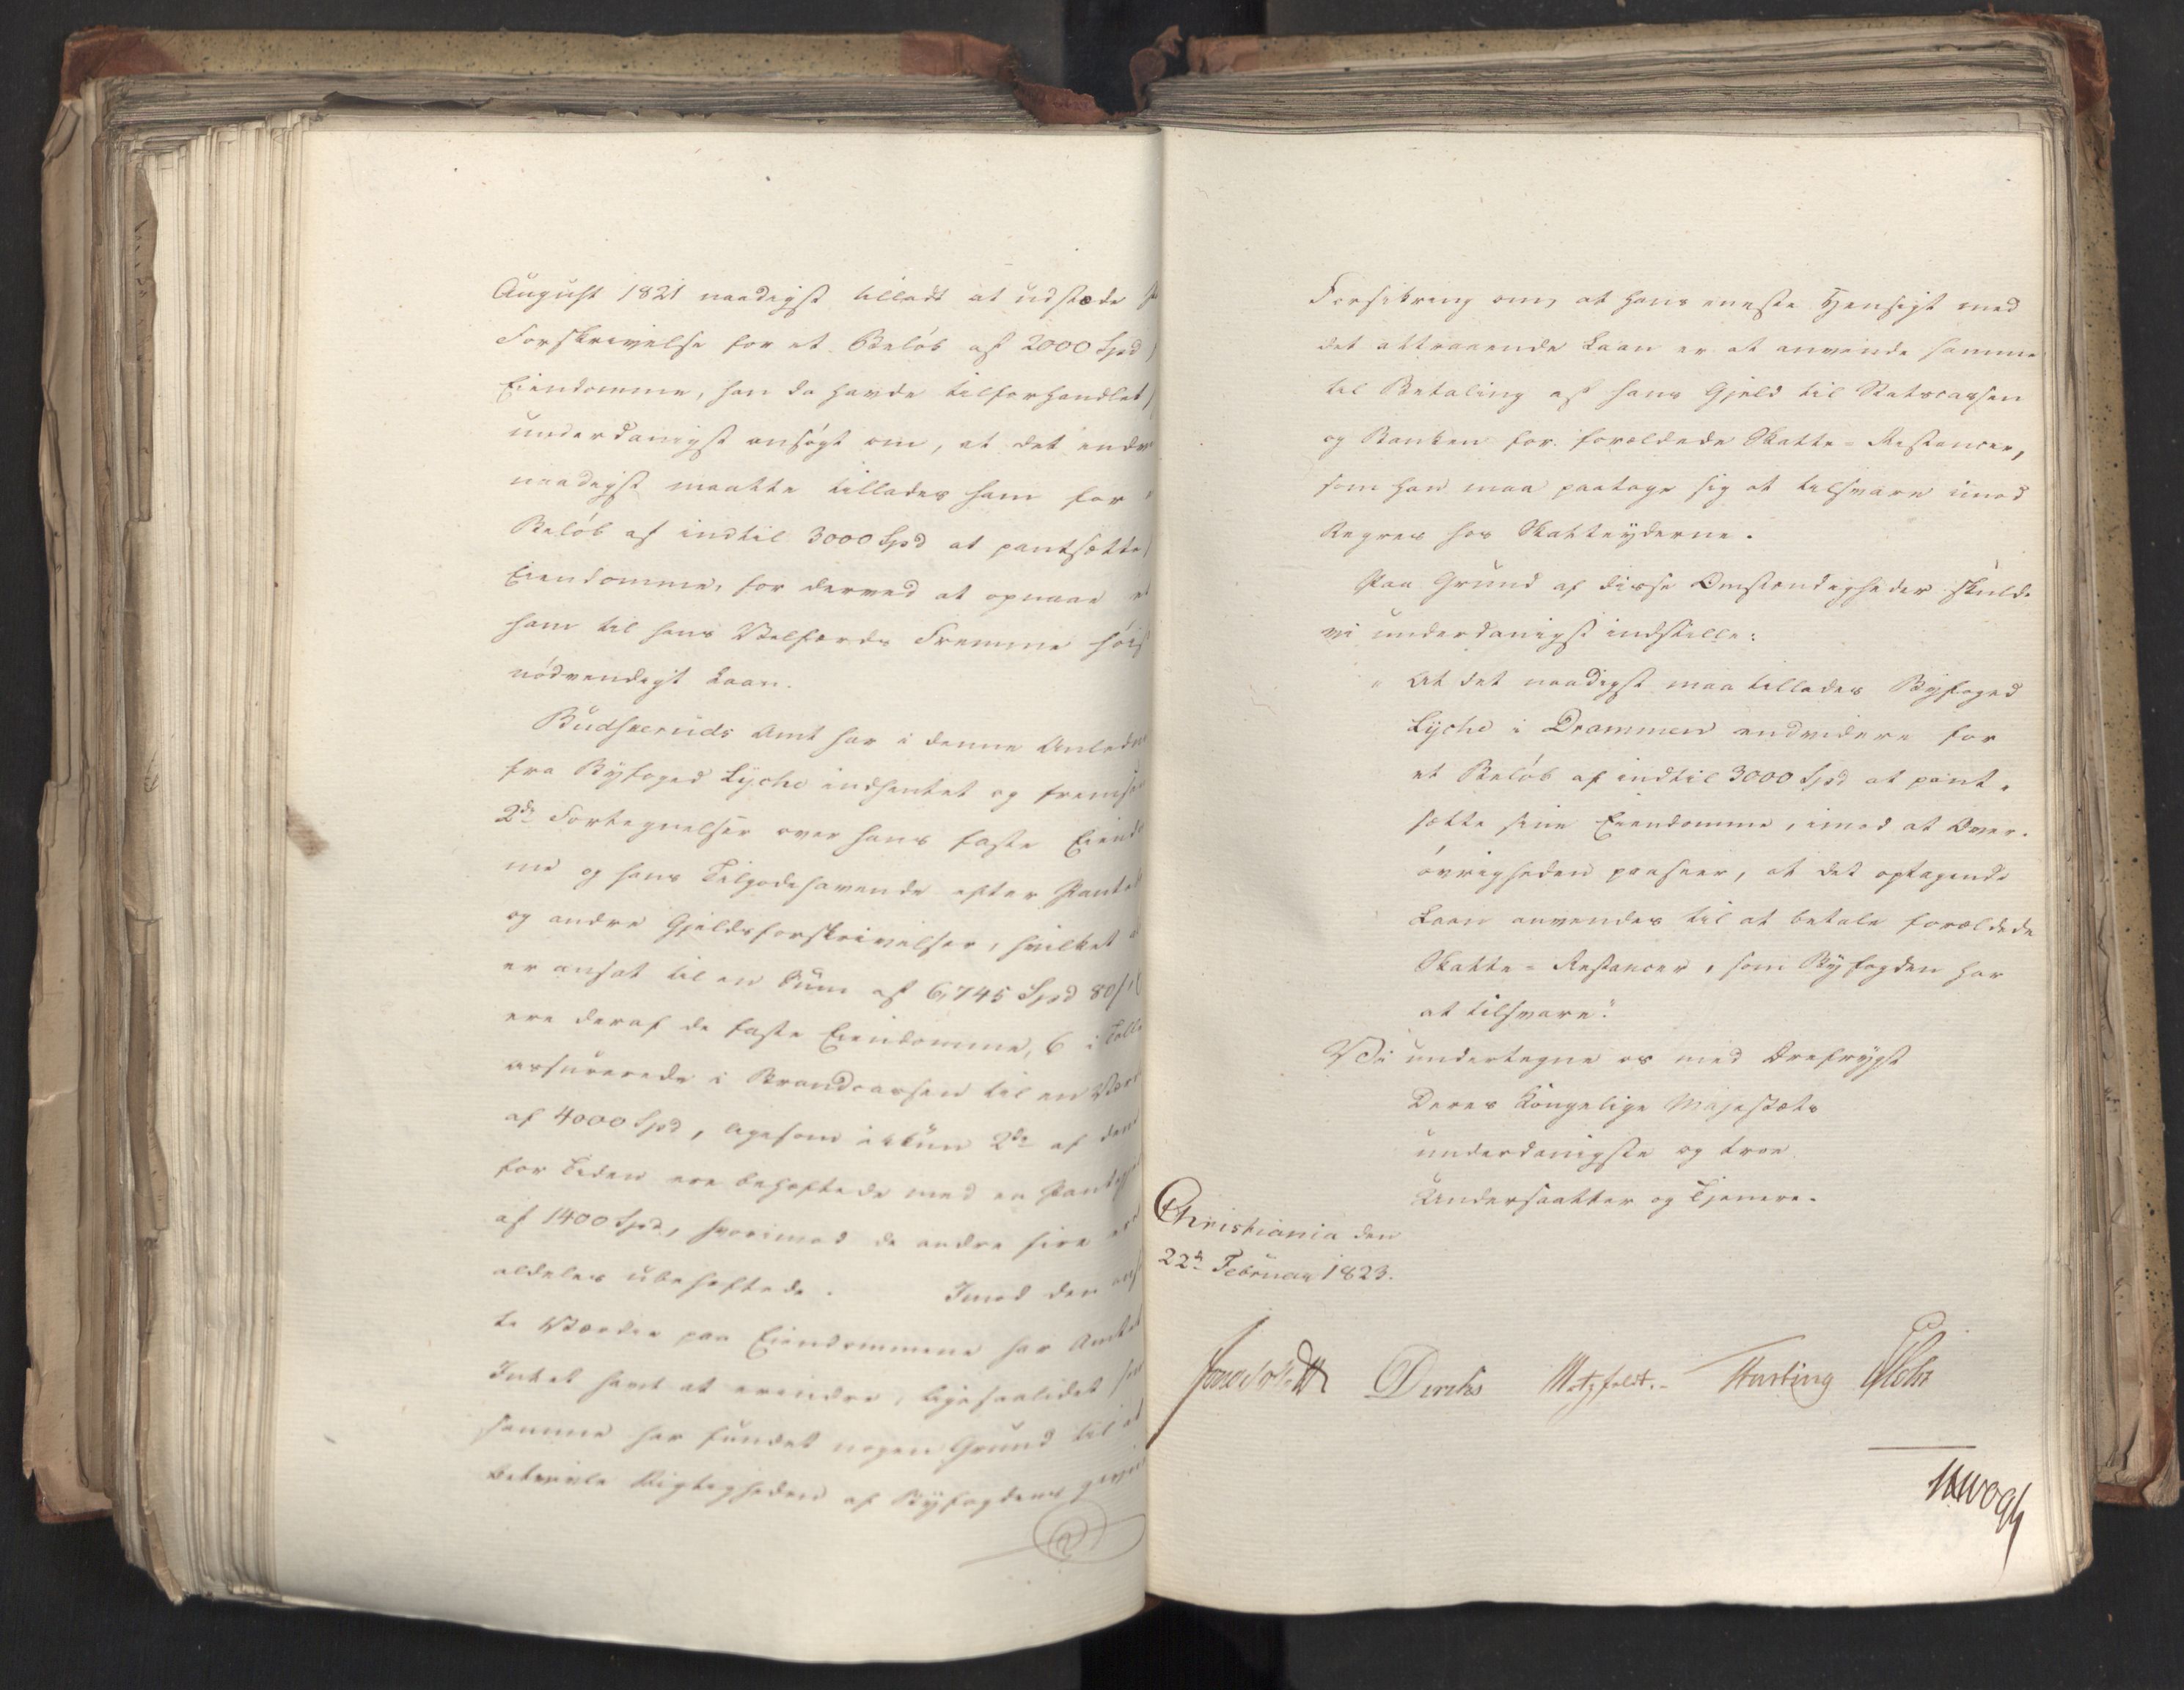 August 1821 naadigst tilladt at udstæde
Forskrivelse for et Beløb af 2000 Spd
Eiendomme, han da havde tilforhandlet
underdanigst ansøgt om, at det
naadigst maatte tillades ham for
Beløb af indtil 3000 Spd at pantsætte
Eiendomme, for derved at opnaae et
ham til hans Velfærds Fremme
nødvendigt Laan.
Budskeruds Amt har i denne
fra Byfoged Lyche indhentet og
2de Fortegnelser over hans faste
me og hans Tilgodehavende efter
og andre Gjeldsforskrivelser, hvilket
er ansat til en Sum af 6,745 Spd 80
ere deraf de faste Eiendomme, 6 i
assurerede i Brandcassen til en
af 4000 Spd, ligesom ikkun 2de af
for Tiden ere behæftede med en
af 1400 Spd, hvorimod de andre fire ere
aldeles ubehæftede. Imod den
te Værdie paa Eiendommene har Amtet
Intet havt at erindre, ligesaalidet som
samme har fundet nogen Grund til at
betvivle Rigtigheden af Byfogdens
Forsikring om, at hans eneste Hensigt med
det attraaende Laan er at anvende samme
til Betaling af hans Gjeld til Statscassen
og Banken for forældede Skatte-Restancer,
som han maa paatage sig at tilsvare imod
Regres hos Skatteyderne.
Paa Grund af disse Omstændigheder skulde
vi underdanigst indstille:
"At det naadigst maa tillades Byfoged
Lyche i Drammen endvidere for
et Beløb af indtil 3000 Spd at pant-
sætte sine Eiendomme, imod at Over-
øvrigheden paaseer, at det optagende
Laan anvendes til at betale forældede
Skatte-Restancer, som Byfogden har
at tilsvare."
Vi undertegne os med Ærefrygt
Deres Kongelige Majestæts
underdanigste og troe
Undersaatter og Tjenere.
Christiania den
22de Februar 1823.
Jonas Collett Diriks Motzfeldt.- Krebs
Hwogh